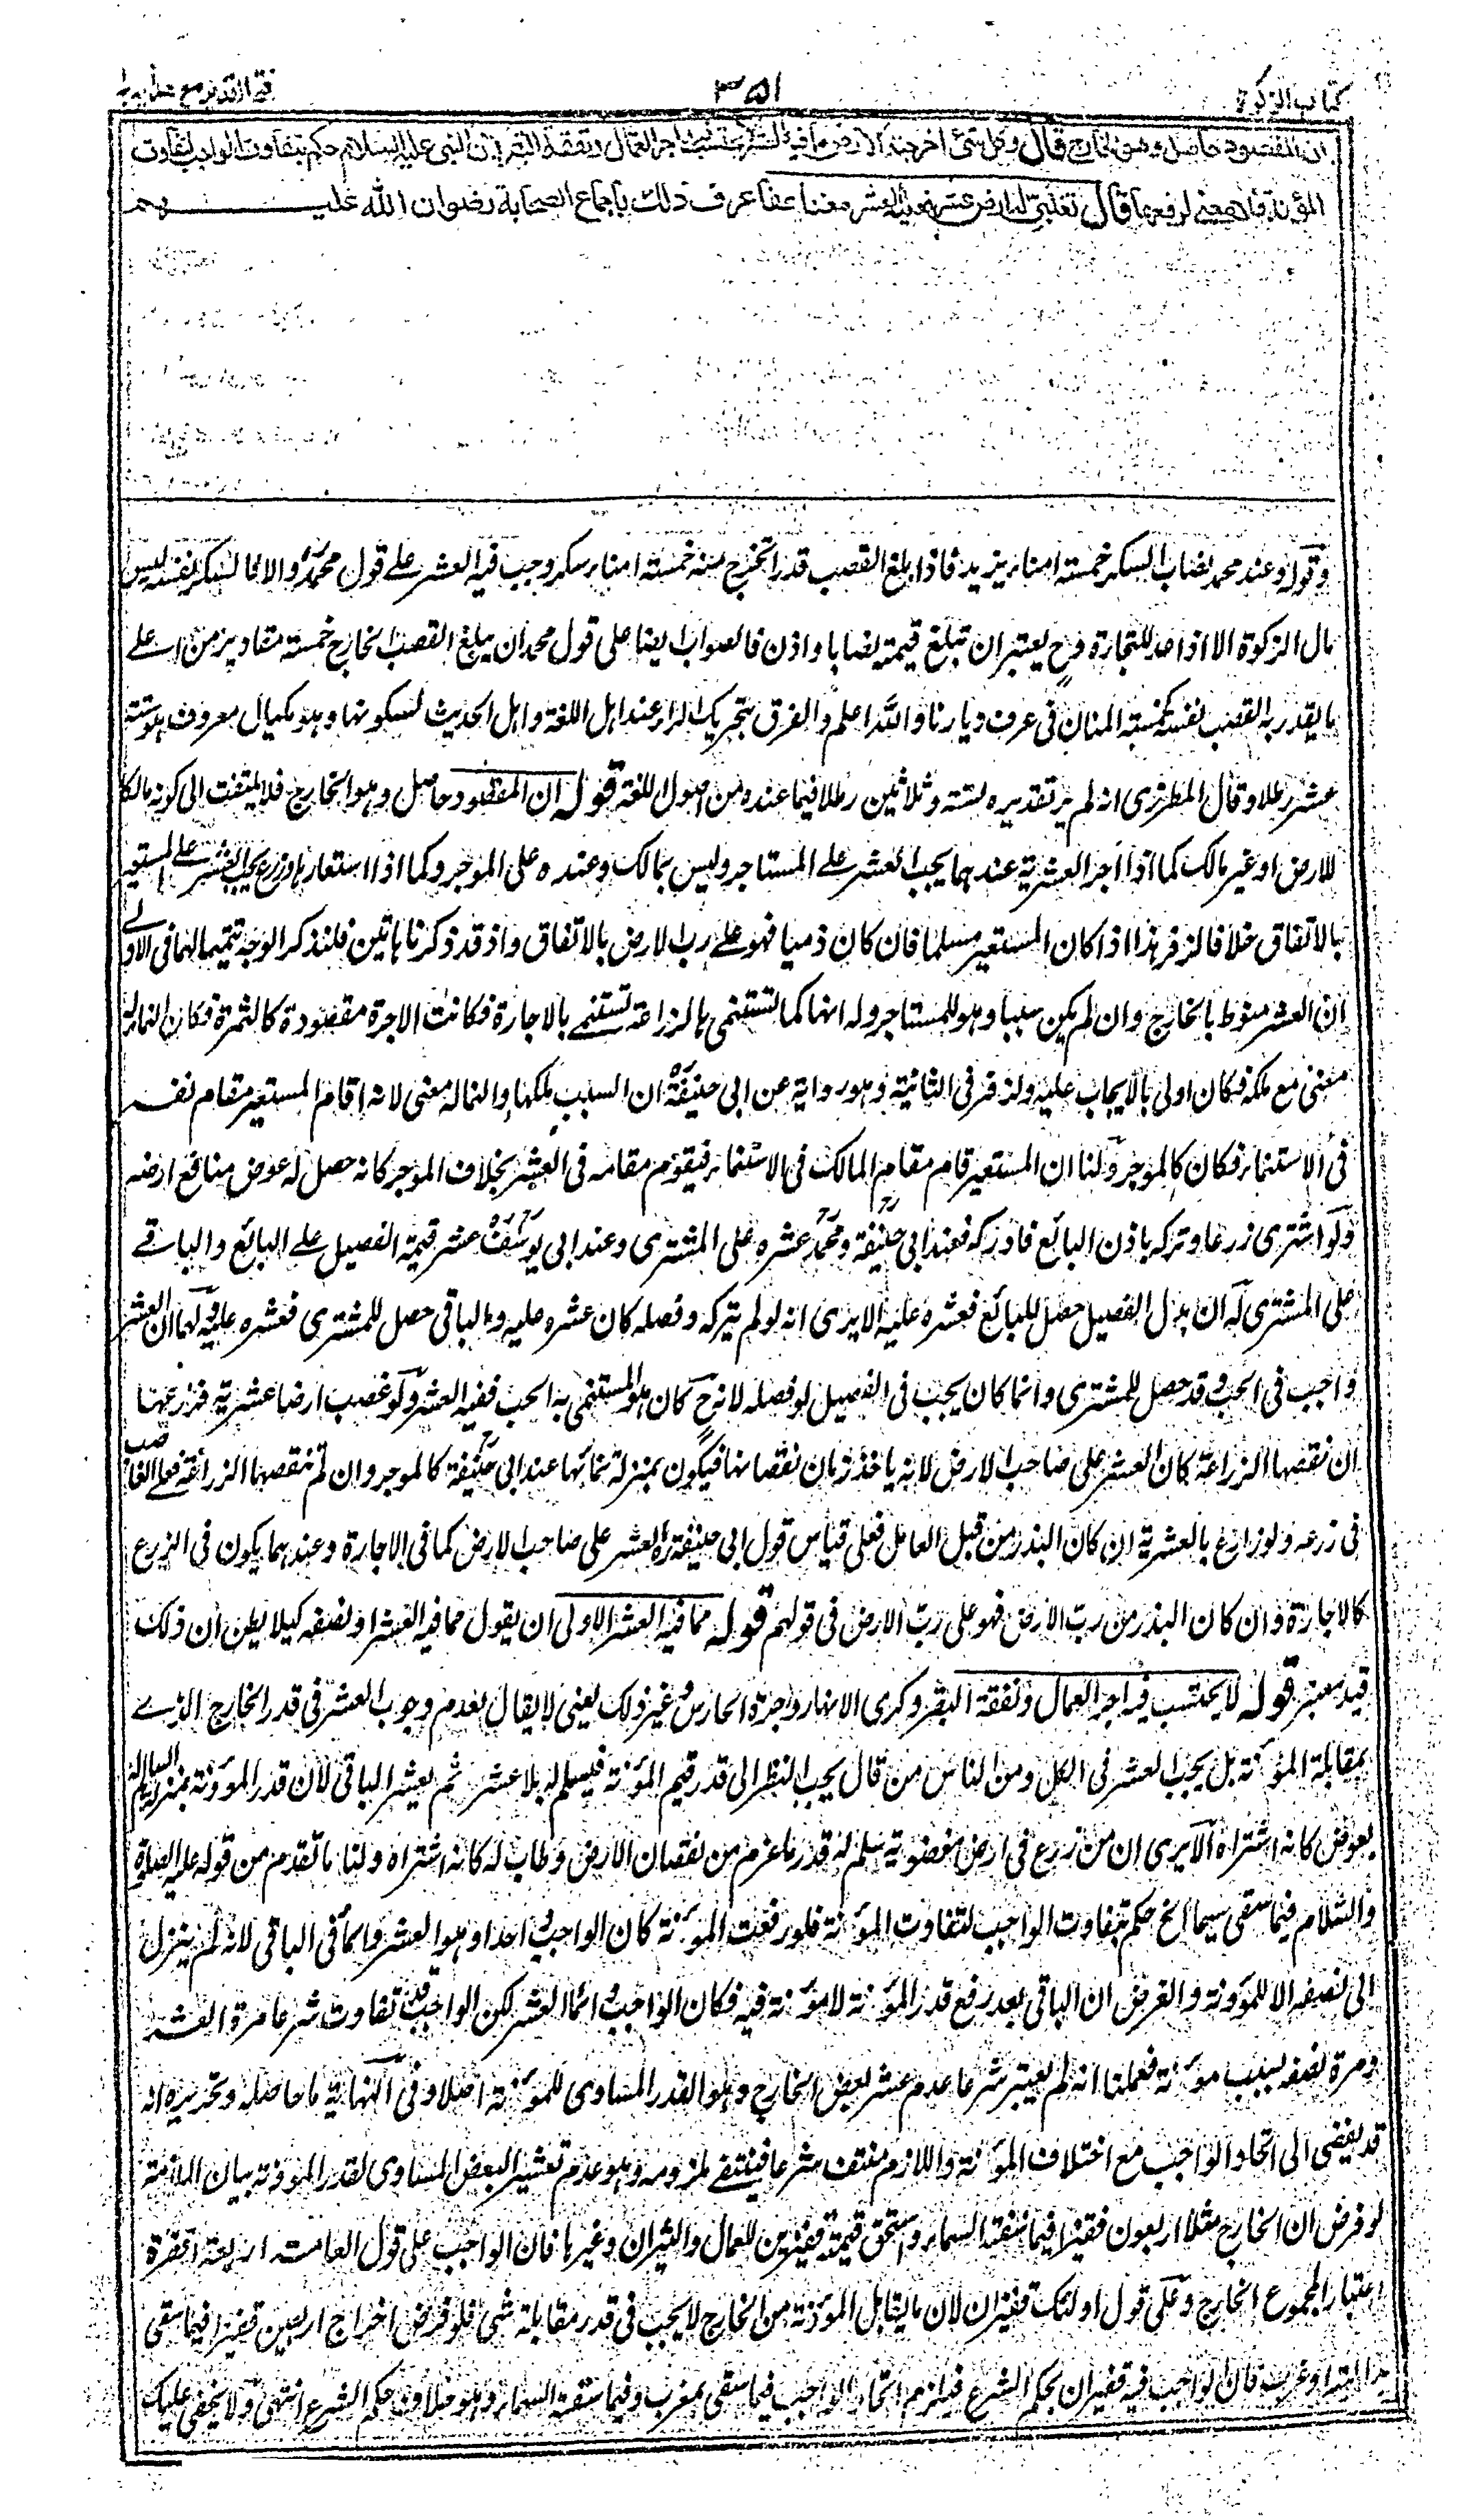 كتاب الزكوة
٣٥١
فتح القدير مع هدايه ج ا
ان المقصود حاصل وهو الخارج قال وكل شئ اخرجته الارض مما فيه العشر لا يحتسب فيه اجر العمال ونفقة البقر لان النبى عليه السلام حكم بتفاوت الواجب لتفاوت
المؤنة فلا معنى لرفعها قال تغلبى له ارض عشر فعليه العشر مضاعفا عرف ذلك باجماع الصحابة رضوان الله عليهم
وقوله وعند محمد نصاب السكر خمسة امناء يريد فاذا بلغ القصب قدرا تخرج منه خمسة امناء سكر وجب فيه العشر على قول محمد والا فالسكر نفسه ليس
مال الزكوة الا اذا اعد للتجارة وح يعتبر ان تبلغ قيمته نصابا واذن فالصواب ايضا على قول محمد ان يبلغ القصب الخارج خمسة مقادير من اعلى
ما يقدر به القصب نفسه كخمسة اطنان فى عرف ديارنا والله اعلم والفرق بتحريك الراء عند اهل اللغة واهل الحديث يسكونها وهو مكيال معروف هو ستة
عشر رطلا وقال المطرزى انه لم ير تقديره بستة وثلاثين رطلا فيما عنده من اصول اللغة قوله ان المقصود حاصل وهو الخارج فلا يلتفت الى كونه مالكا
للارض او غير مالك كما اذا آجر العشرية عندهما يجب العشر على المستاجر وليس بمالك وعنده على الموجر وكما اذا استعارها وزرع يجب العشر على المستعير
بالاتفاق خلافا لزفر هذا اذا كان المستعير مسلما فان كان ذميا فهو على رب الارض بالاتفاق واذ قد ذكرنا هاتين فلنذكر الوجه تتميما لهما فى الاولى
ان العشر منوط بالخارج وان لم يكن سببا وهو للمستاجر وله انها كما تستنمى بالزراعة تستنمى بالاجارة فكانت الاجرة مقصودة كالثمرة فكان النماء له
معنى مع ملكه فكان اولى بالايجاب عليه ولزفر فى الثانية وهو رواية عن ابى حنيفةؒ ان السبب ملكها والنماء له معنى لانه اقام المستعير مقام نفسه
فى الاستنماء فكان كالموجر ولنا ان المستعير قام مقام المالك فى الاستنماء فيقوم مقامه فى العشر بخلاف الموجر كانه حصل له عوض منافع ارضه
ولو اشترى زرعا وتركه باذن البائع فادركه فعند ابى حنيفة ومحمد عشره على المشترى وعند ابى يوسف عشر قيمة القصيل على البائع والباقى
على المشترى له ان بدل القصيل حصل للبائع فعشره عليه الا يرى انه لو لم يتركه وفصله كان عشره عليه والباقى حصل للمشترى فعشره عليه ولهما ان العشر
واجب فى الحب وقد حصل للمشترى وانما كان يجب فى القصيل لو فصله لانه ح كان هو المستنمى به الحب ففيه العشر ولو غصب ارضا عشرية فزرعها
ان نقصها الزراعة كان العشر على صاحب الارض لانه ياخذ ضمان نقصانها فيكون بمنزلة نمائها عند ابى حنيفة كالموجر وان لم تنقصها الزراعة فعلى الغاصب
فى زرعه ولو زارع بالعشرية ان كان البذر من قبل العامل فعلى قياس قول ابى حنيفةؒ العشر على صاحب الارض كما فى الاجارة وعندهما يكون فى الزرع
كالاجارة وان كان البذر من رب الارض فهو على رب الارض فى قولهم قوله مما فيه العشر الاولى ان يقول مما فيه العشر او نصفه كيلا يظن ان ذلك
قيد معتبر قوله لا يحتسب فيه اجر العمال ونفقة البقر وكرى الانهار واجرة الحارس وغير ذلك يعنى لا يقال بعدم وجوب العشر فى قدر الخارج الذى
بمقابلة المؤنة بل يجب العشر فى الكل ومن الناس من قال يجب النظر الى قدر قيم المؤنة فيسلم له بلا عشر ثم يعشر الباقى لان قدر المؤنة بمنزلة السالم له
بعوض كانه اشتراه الا يرى ان من زرع فى ارض مغصوبة سلم له قدر ما غرم من نقصان الارض وطاب له كانه اشتراه ولنا ما تقدم من قوله عليه الصلوة
والسلام فيما سقى سيحا الخ حكم بتفاوت الواجب لتفاوت المؤنة فلو رفعت المؤنة كان الواجب واحدا وهو العشر دائما فى الباقى لانه لم ينزل
الى نصفه الا للمؤونة والفرض ان الباقى بعد رفع قدر المؤنة لا مؤنة فيه فكان الواجب دائما العشر لكن الواجب قد تفاوت شرعا مرة العشر
ومرة نصفه بسبب مؤنة فعلمنا انه لم يعتبر شرعا عدم عشر بعض الخارج وهو القدر المساوى للمؤنة اصلا وفى النهاية ما حاصله وتحريره انه
قد يفضى الى اتحاد الواجب مع اختلاف المؤنة واللازم منتف شرعا فينتفى ملزومه وهو عدم تعشير البعض المساوى لقدر المؤنة بيان الملازمة
لو فرض ان الخارج مثلا اربعون قفيزا فيما سقته السماء واستحق قيمة قفيزين للعمال والثيران وغيرها فان الواجب على قول العامة اربعة اقفزة
اعتبارا لمجموع الخارج وعلى قول اولئك قفيزان لان ما يقابل المؤنة من الخارج لا يجب فى قدر مقابلته شئ فلو فرض اخراج اربعين قفيزا فيما سقى
بدالية او غرب فان الواجب فيه قفيزان بحكم الشرع فيلزم اتحاد الواجب فيما سقى بغرب وفيما سقته السماء وهو خلاف حكم الشرع انتهى ولا يخفى عليك